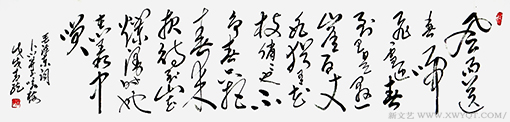 风雨送
春归
飞雪迎春
到已是悬
崖百丈
冰犹有花
枝俏俏也不
争春只把
春来
报待到山花
烂漫时她
在丛中
笑
毛泽东词
卜算子咏梅
戊戌
新文艺(WWW.XWYQT.COM)